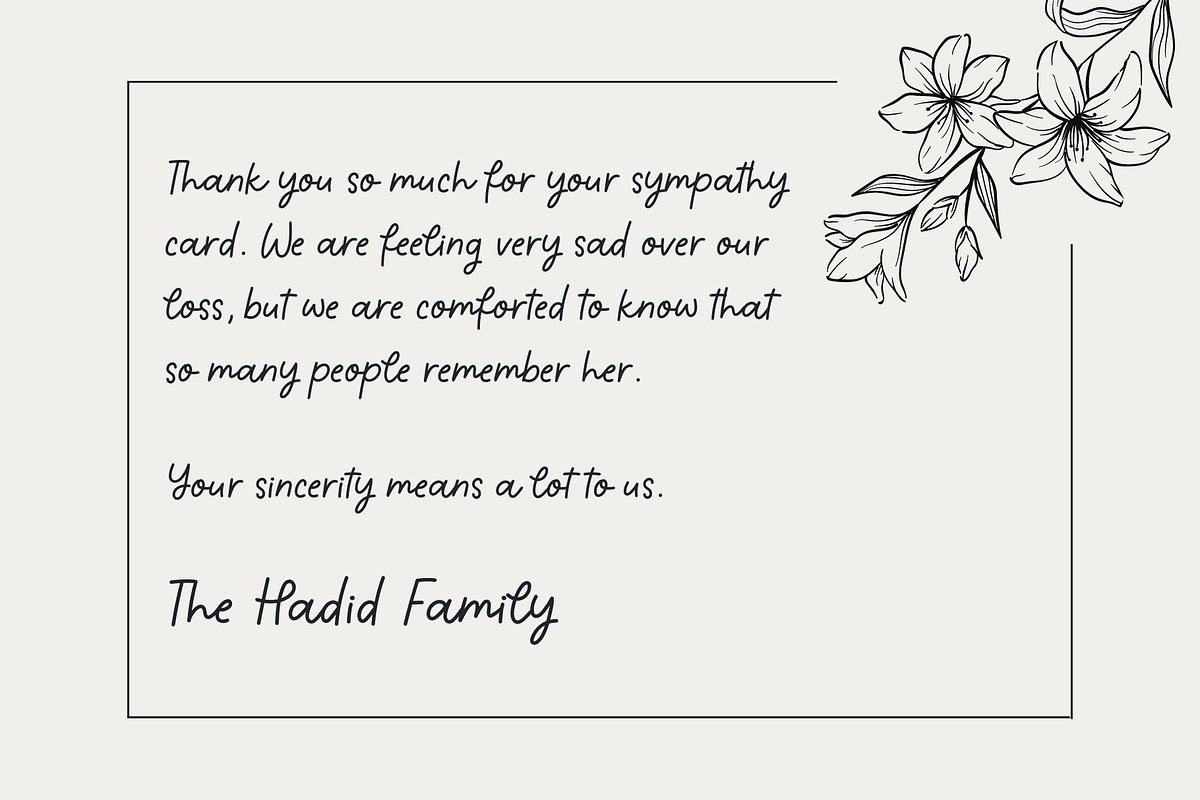 Thank you so much for your sympathy
card. We are feeling very sad over our
loss, but we are comforted to know that
so many people remember her.
Your sincerity means a lot to us.
The Hadid Family